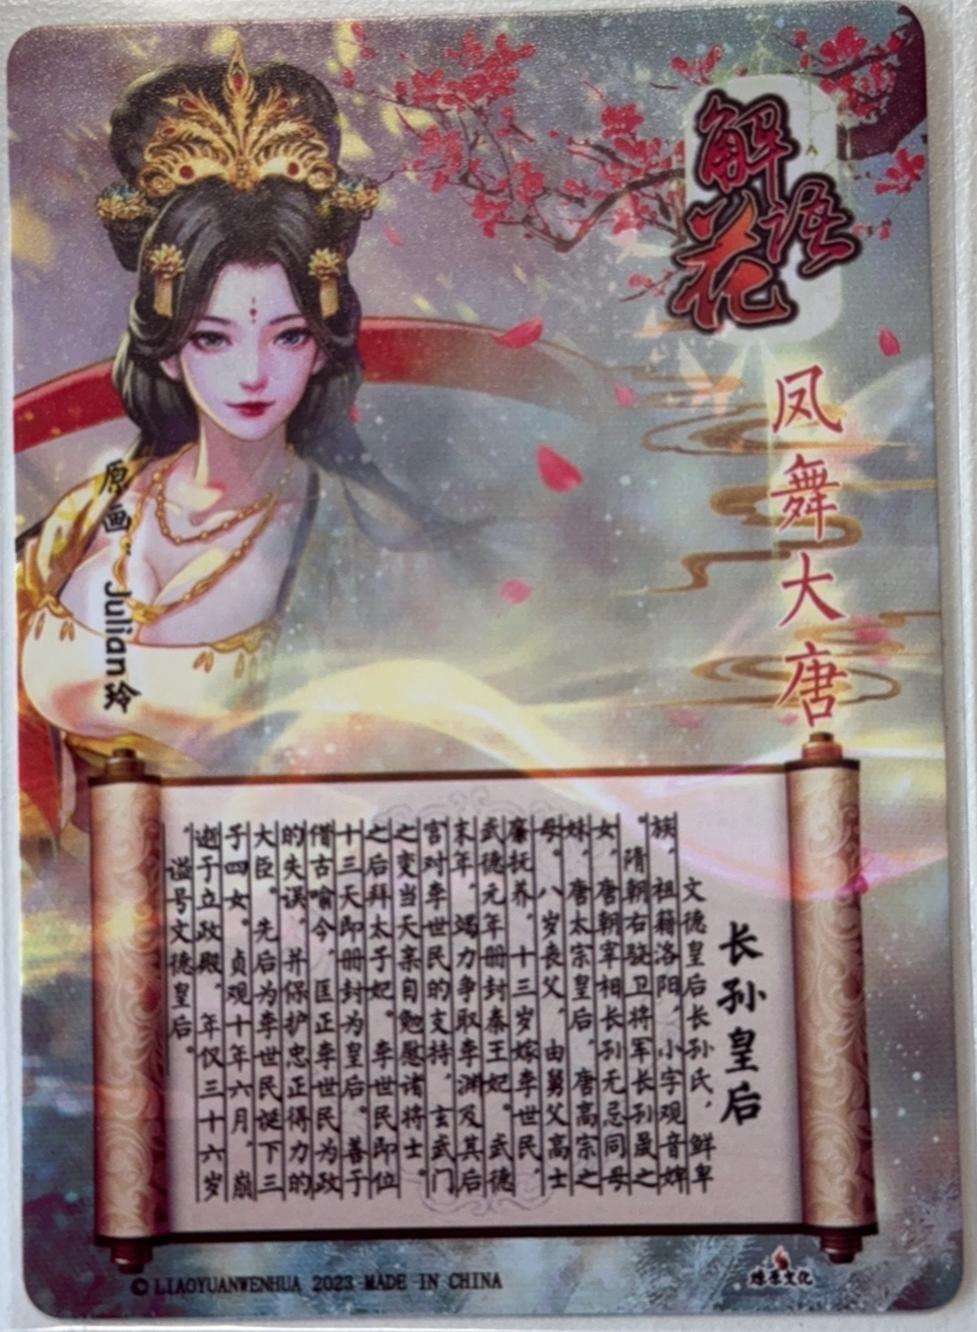 解语花
凤舞大唐
原画：Julian玲
长孙皇后
文德皇后长孙氏，鲜卑
族，祖籍洛阳，小字观音婢
。隋朝右骁卫将军长孙晟之
女，唐朝宰相长孙无忌同母
妹，唐太宗皇后，唐高宗之
母。八岁丧父，由舅父高士
廉抚养，十三岁嫁李世民，
武德元年册封秦王妃。武德
末年，竭力争取李渊及其后
宫对李世民的支持，玄武门
之变当天亲自勉慰诸将士。
之后拜太子妃。李世民即位
十三天即册封为皇后。善于
借古喻今，匡正李世民为政
的失误，并保护忠正得力的
大臣。先后为李世民诞下三
子四女。贞观十年六月，崩
逝于立政殿，年仅三十六岁
。谥号文德皇后。
© LIAOYUANWENHUA 2023 MADE IN CHINA
燎原文化